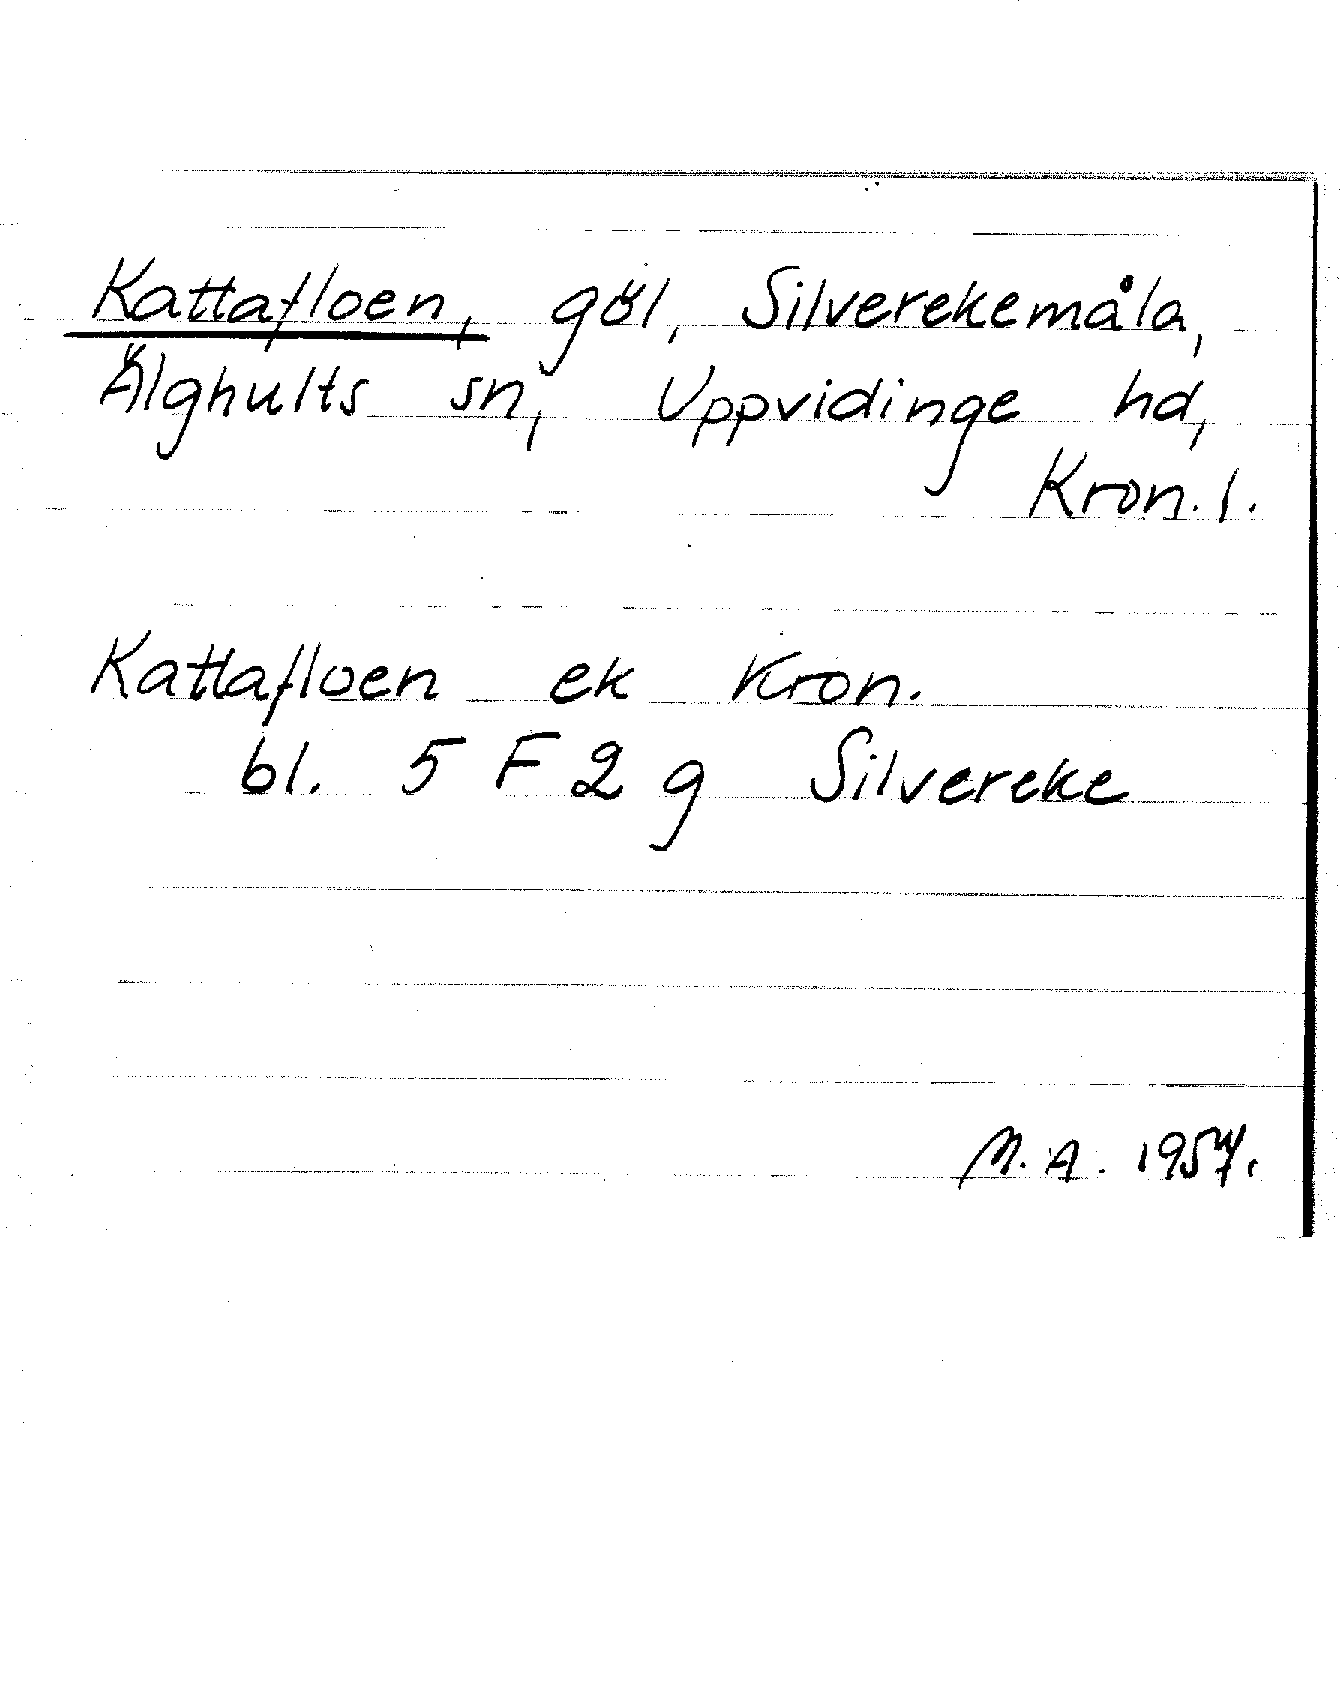 Kattafloen, göl, Silverekemåla,
Älghults sn, Uppvidinge hd,
Kron. l.
Kattafloen ek Kron.
bl. 5 F 2 g Silvereke
M. A. 1957.